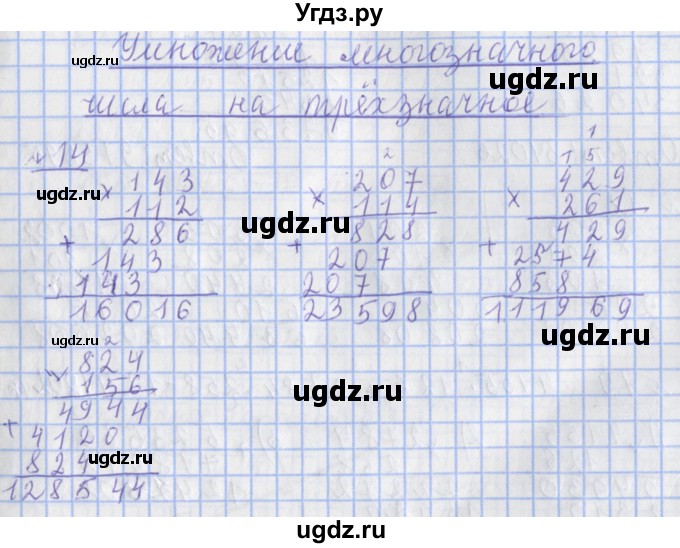 Угдз.ру
Умножение многозначного
числа на трёхзначное
ugdz.ru
ugdz.ru
№ 14
2
1
1 5
143
207
429
× 112
× 114
× 261
ugdz.ru
ugdz.ru
ugdz.ru
286
828
429
+ 143
+ 207
+ 2574
143
207
858
16016
23598
111969
ugdz.ru
ugdz.ru
2
824
× 156
ugdz.ru
4944
+ 4120
824
ugdz.ru
128544
ugdz.ru